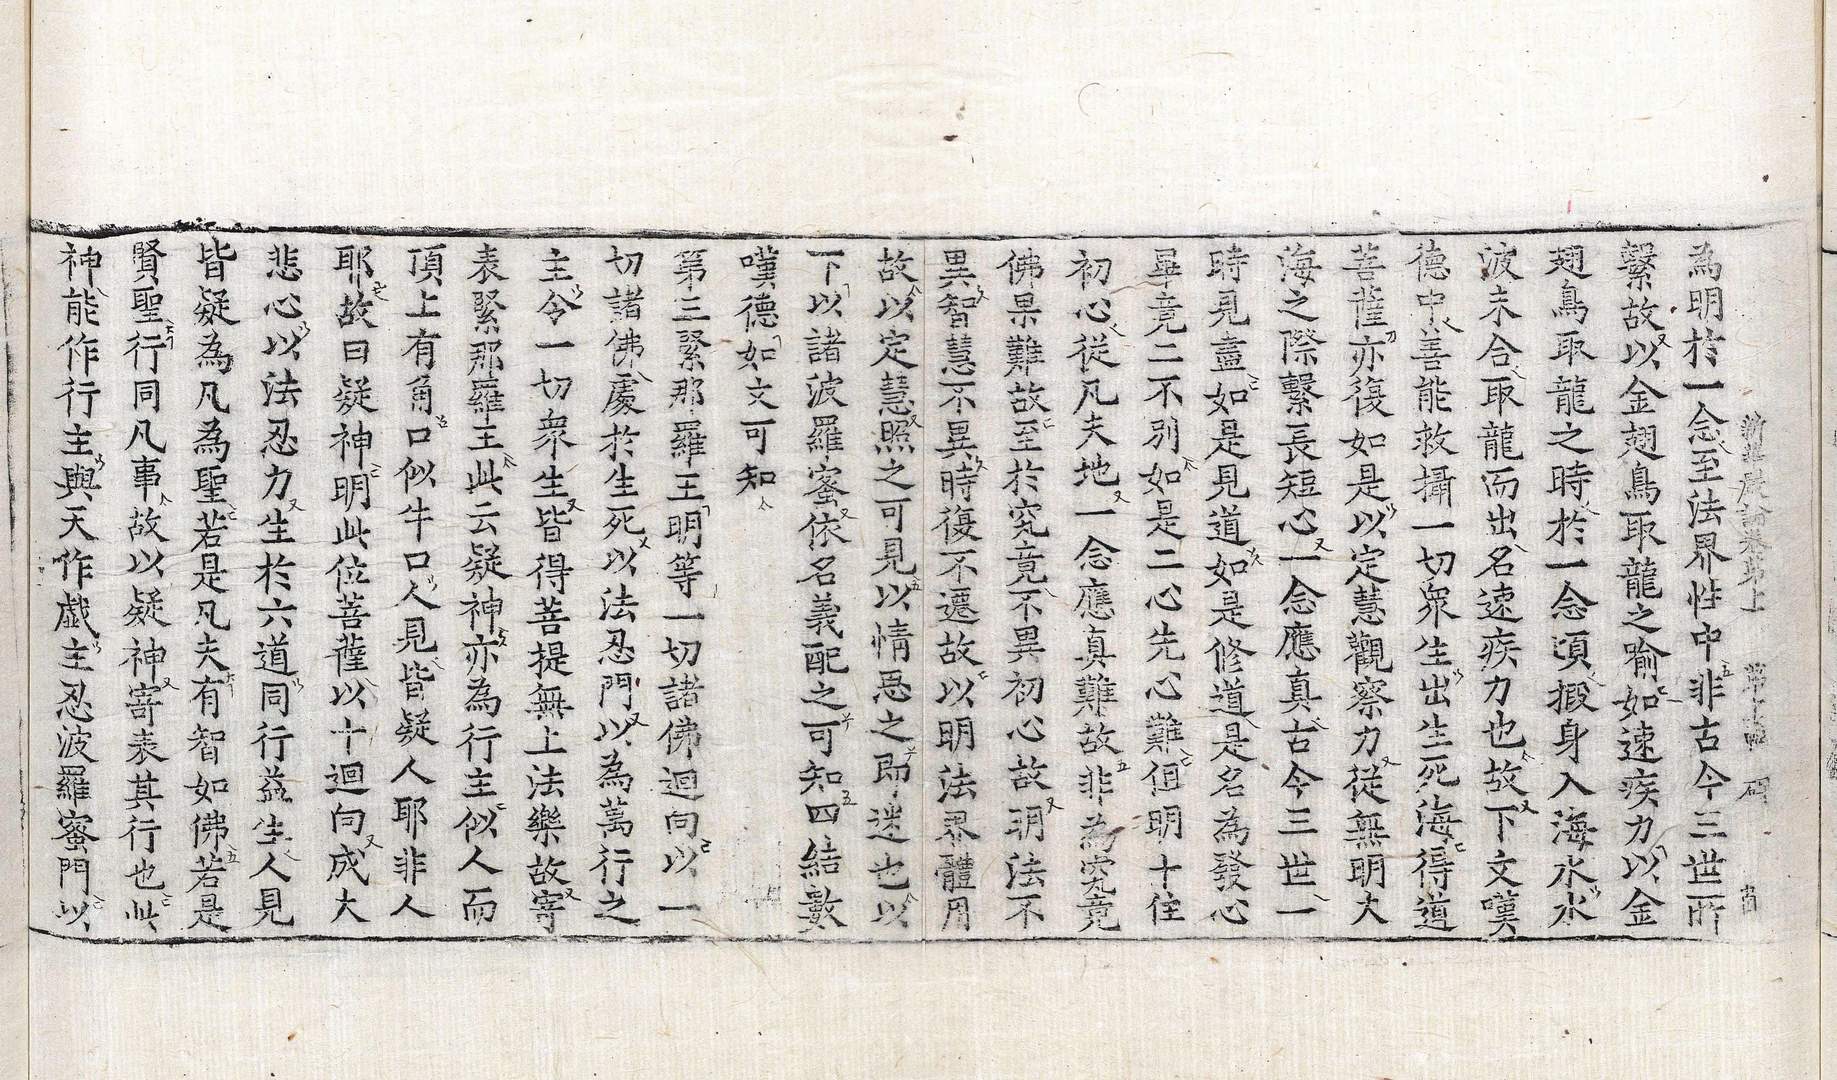 為明於一念至法界性中非古今三世所
繫故以金翅鳥取龍之喻如速疾力以金
翅鳥取龍之時於一念頃搬身入海水水
波未合取龍而出名速疾力也故下文嘆
德中善能救攝一切衆生出生死海得道
菩薩亦復如是以定慧觀察力從無明大
海之際繫長短心一念應真古今三世一
時見盡如是見道如是修道是名為發心
畢竟二不別如是二心先心難但明十住
初心從凡夫地一念應真難故非為究竟
佛果難故至於究竟不異初心故明法不
異智慧不異時復不遷故以明法界體用
故以定慧照之可見以情思之即迷也以
下以諸波羅蜜依名義配之可知四結數
嘆德如文可知
第三緊那羅王明等一切諸佛迴向以一
切諸佛處於生死以法忍門以為萬行之
主令一切衆生皆得菩提無上法樂故寄
表緊那羅王此云疑神亦為行主似人而
頂上有角口似牛口人見皆疑人耶非人
耶故曰疑神明此位菩薩以十迴向成大
悲心以法忍力生於六道同行益生人見
皆疑為凡為聖若是凡夫有智如佛若是
賢聖行同凡事故以疑神寄表其行也此
神能作行主與天作戲主忍波羅蜜門以